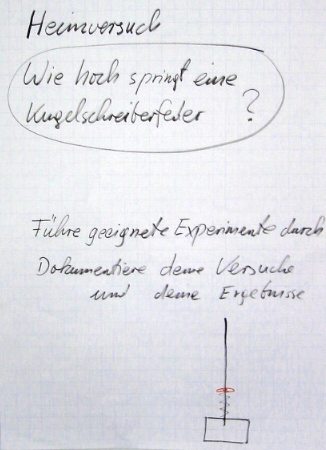 Heimversuch
Wie hoch springt eine
Kugelschreiberfeder ?
Führe geeignete Experimente durch
Dokumentiere deine Versuche
und deine Ergebnisse